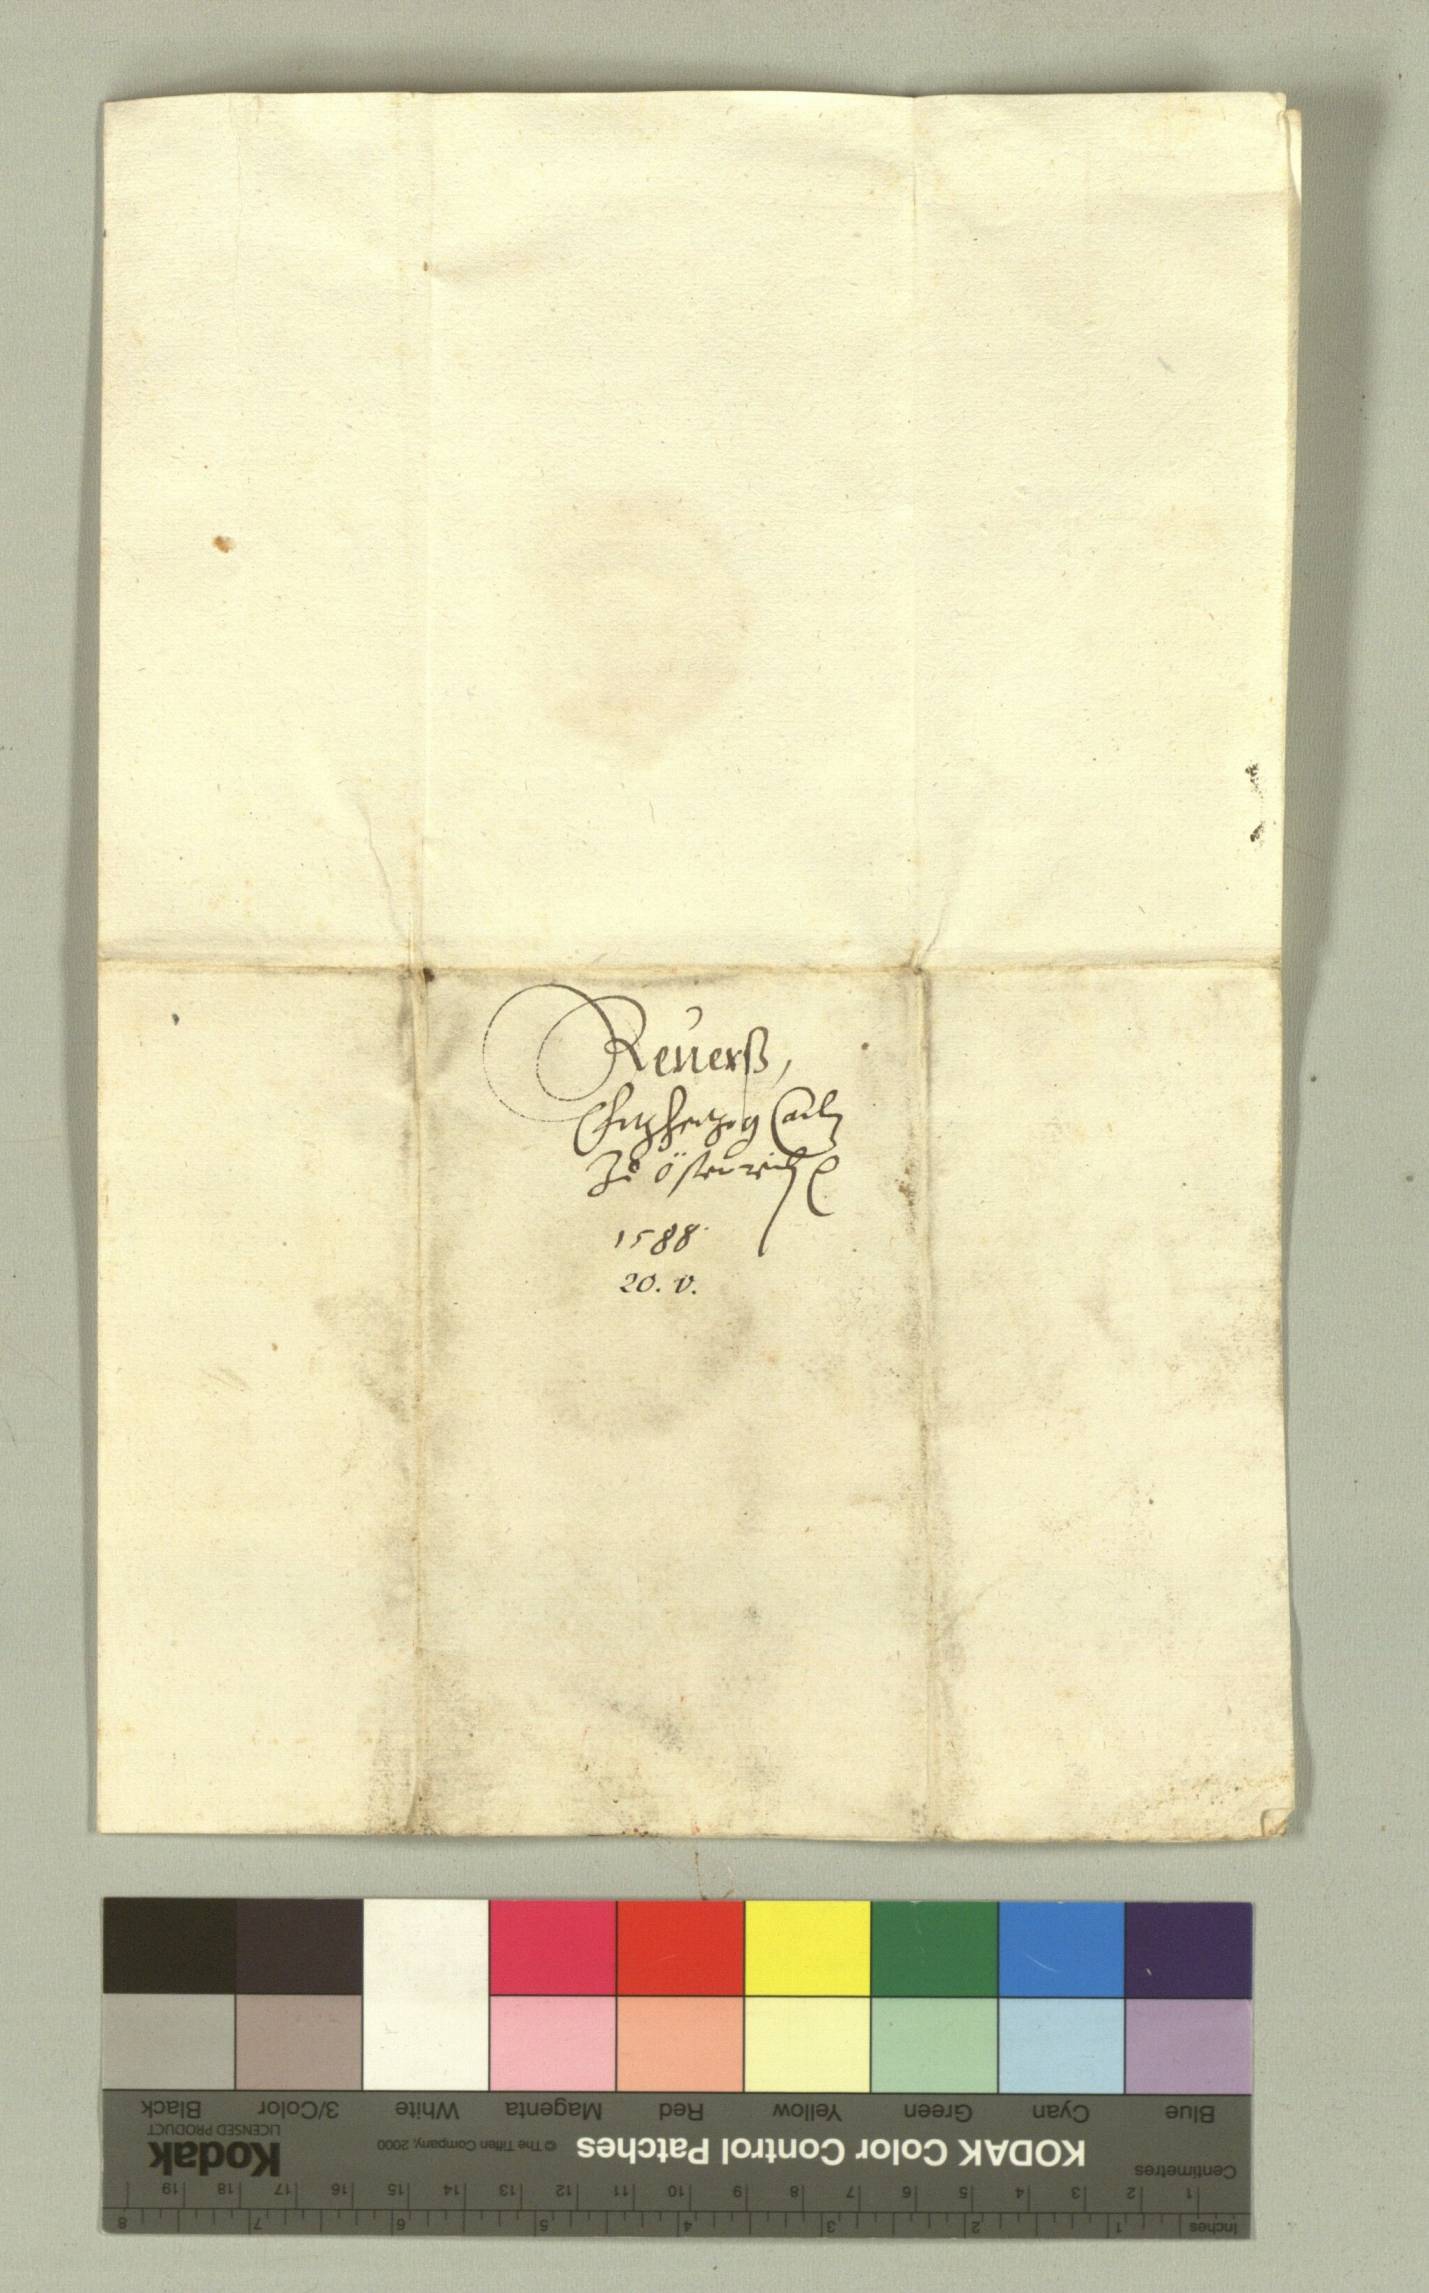 Reuerß,
Ertzhertzog Carls
Zů Österreich
1588.
20. V.
Black
3/Color
White
Magenta
Red
Yellow
Green
Cyan
Blue
Kodak
LICENSED PRODUCT
© The Tiffen Company, 2000
KODAK Color Control Patches
Centimetres
1 2 3 4 5 6 7 8 9 10 11 12 13 14 15 16 17 18 19
Inches
1 2 3 4 5 6 7 8